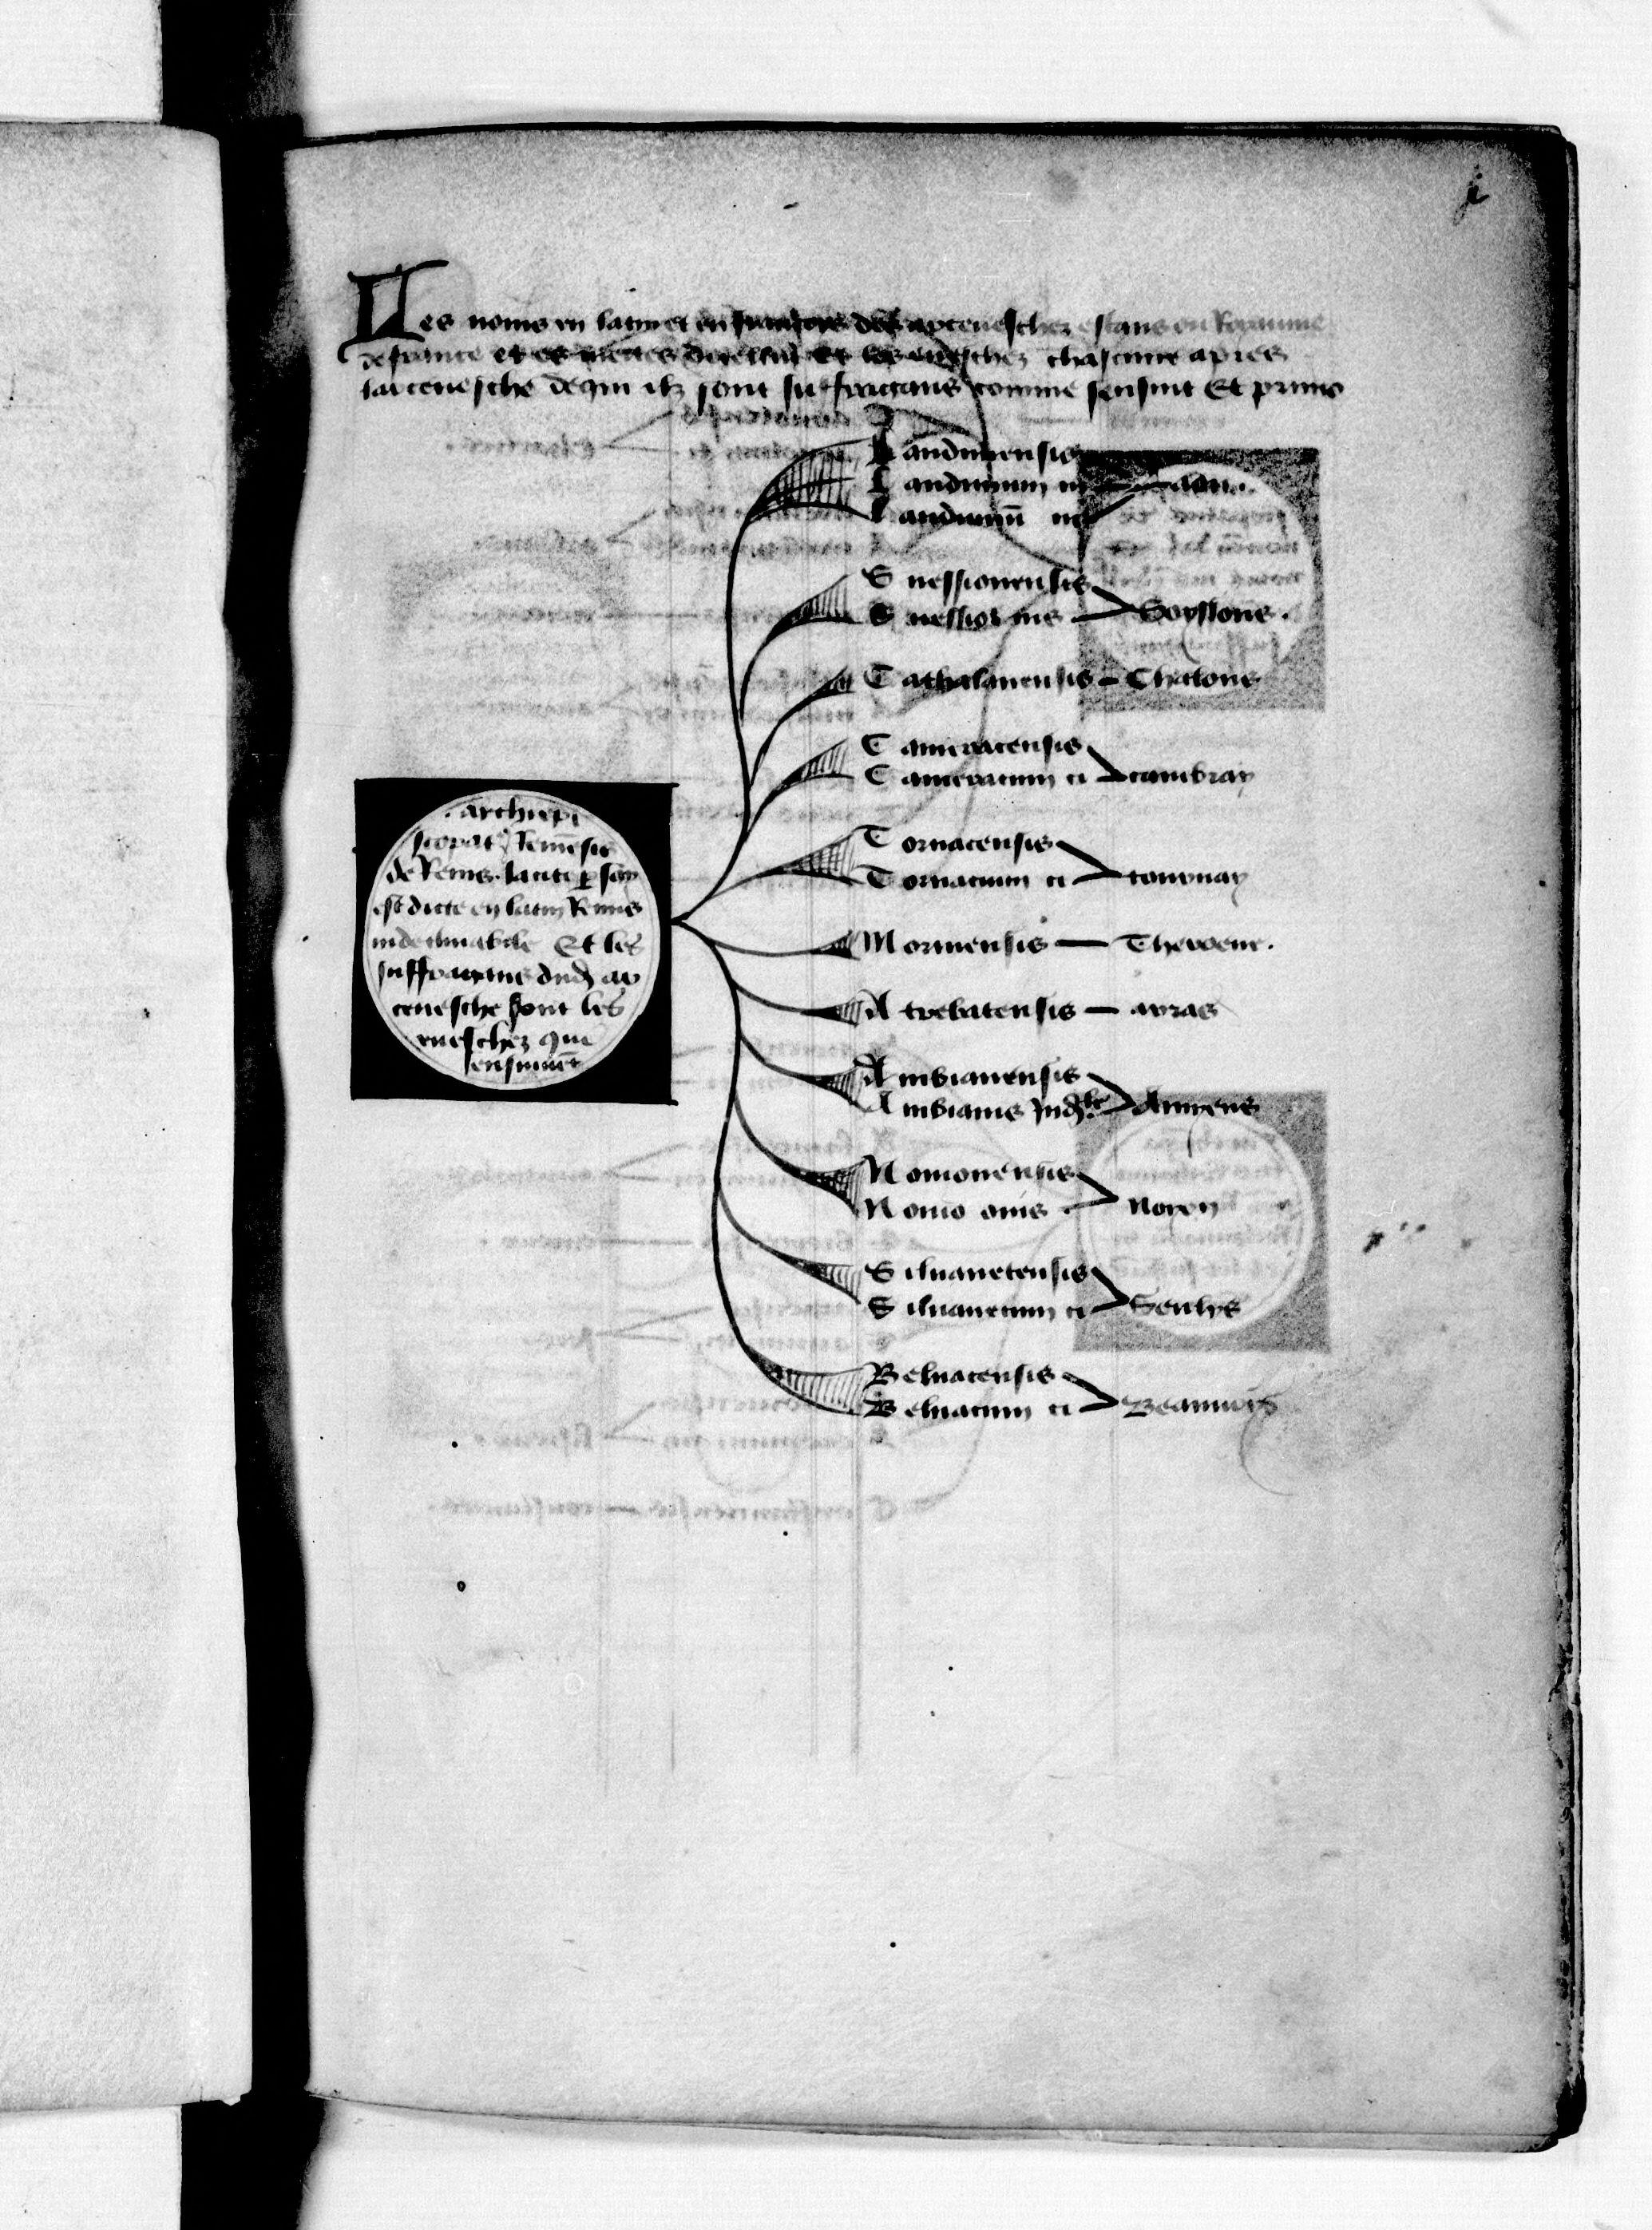 i
Les noms en latin et en francois des arceveschez estans ou Royaume
de france et es mectes dicellui Et les eveschez chascune apres
larcevesche de qui ilz sont suffragans comme sensuit Et primo
archiepi
scopat9 Remēsis
de Rems. lautre son
est dicte en latin Remis
indeclinabile Et les
suffragans dud ar
cevesche sont les
eveschez qui
ensuivēt
Laudunensis
Laudunum ni
Laudunū ni
laon.
Suessionensis
Suessio onis
Soyssons.
Cathalanensis – Chalons
Cameracensis
Cameracum ci
cambray
Tornacensis
Tornacum ci
tournay
Morinensis — Theroene.
Atrebatensis — arras
Ambianensis
Ambianis
Amyens
Novionensis
Novio onis
Noyon
Silvanetensis
Silvanetum ti
Senlys
Belvacensis
Belvacum ci
Beauvais